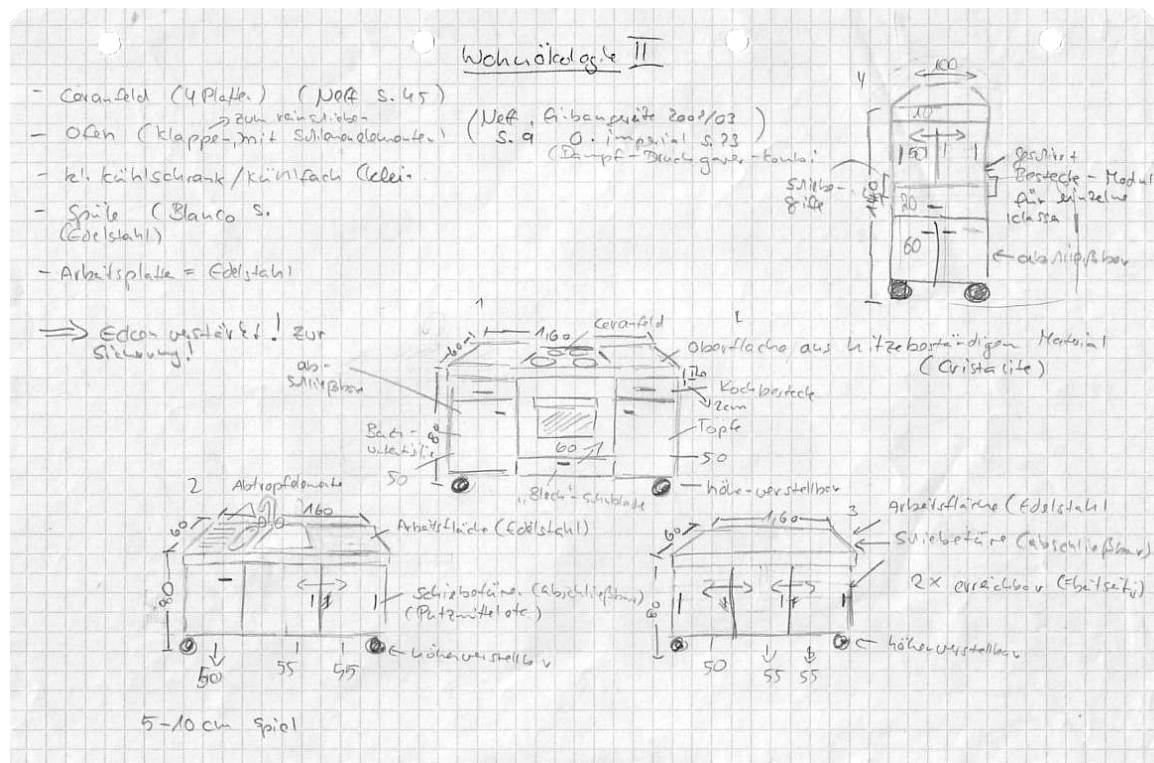 Wohnökologie II
- Ceranfeld (4 Platten.) (Neff S. 45)
zum reinschieben
- Ofen (klappen, mit Schienenelementen)
(Neff, Einbaugeräte 2002/03)
S. 9 O. imperial S. 23
(Dampf-Druckgarer-Kombi
- kl. Kühlschrank/Kühlfach
- Spüle (Blanco S.
(Edelstahl)
- Arbeitsplatte = Edelstahl
⇒ verstärkt! zur
Sicherung!
4
100
10
50
160
20
60
Schiebe-
griffe
Geschirr +
Bestecke - Modul
für einzelne
Klassen
abschließbar
1
60
1,60
Ceranfeld
Oberfläche aus hitzebeständigen Material
(Cristalite)
ab-
schließbar
Kochbestecke
2cm
80
Töpfe
60
50
50
"Blech"-Schublade
höhenverstellbar
2
Abtropfelemente
60
160
Arbeitsfläche (Edelstahl)
80
Schiebetüren (abschließbar)
(Putzmittel etc.)
höhenverstellbar
50
55
55
3
60
1,60
Arbeitsfläche (Edelstahl
Schiebetüre (abschließbar)
2x erreichbar
80
höhenverstellbar
50
55
55
5-10 cm Spiel